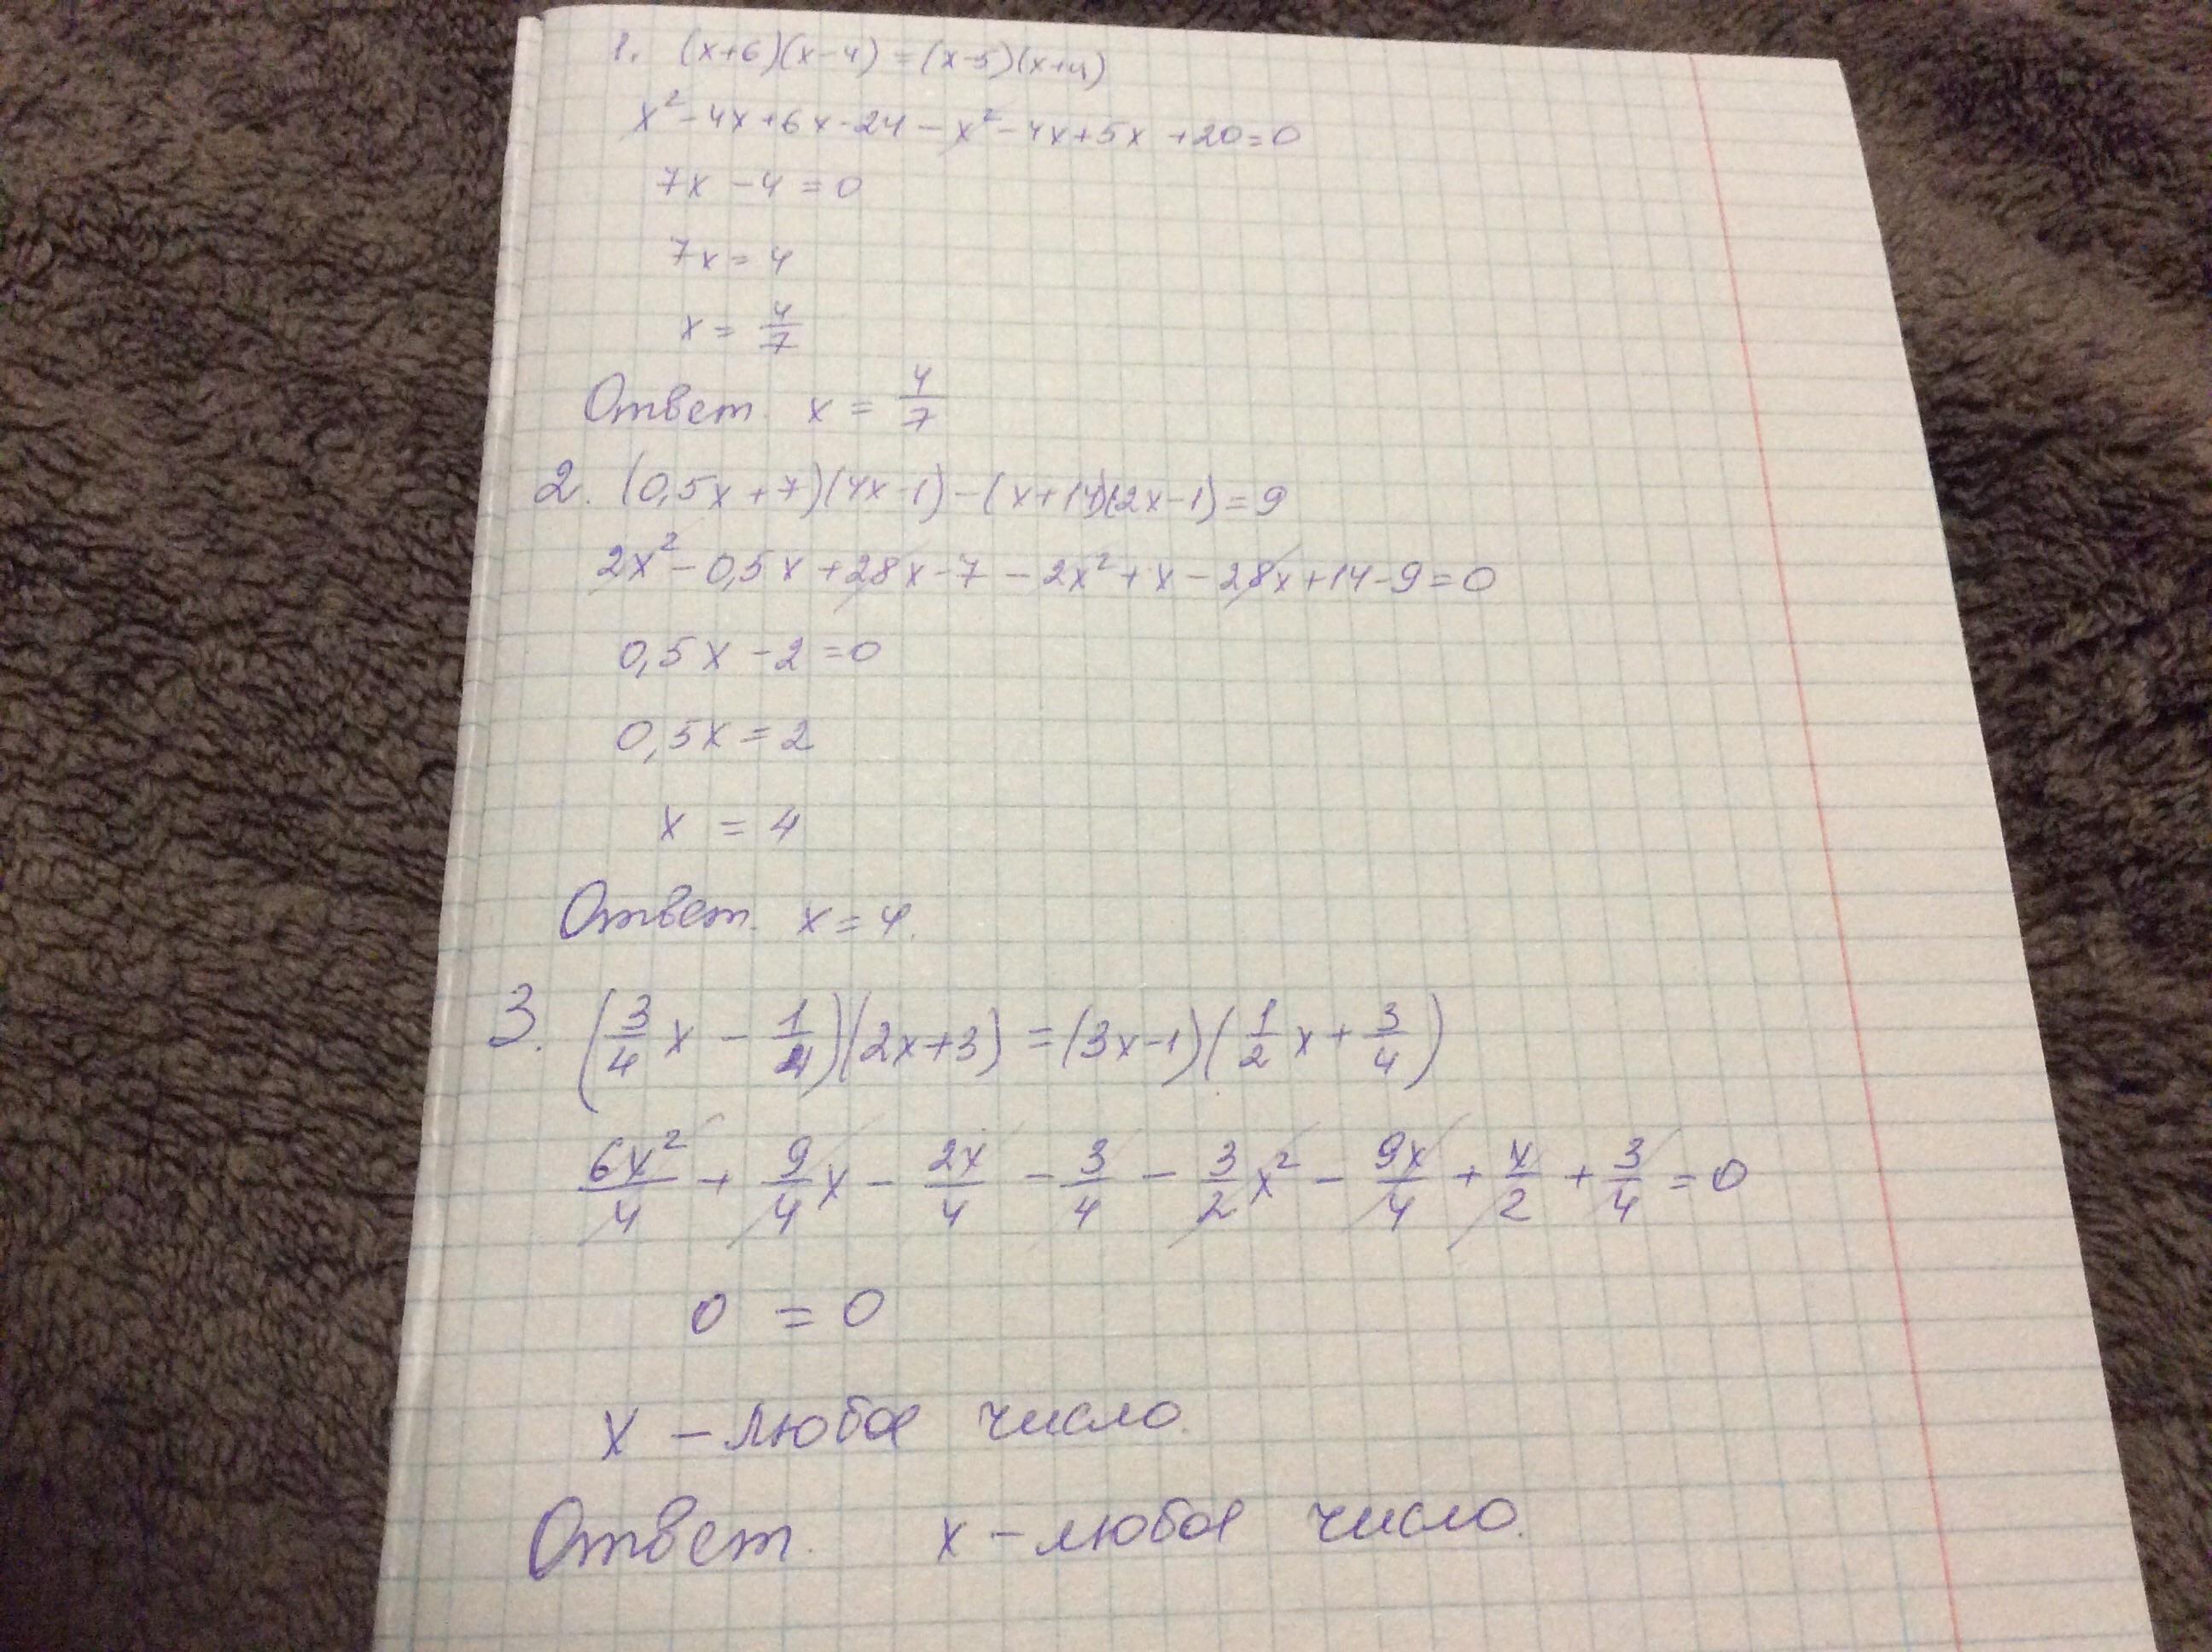 1. (x+6)(x-4)=(x-5)(x+4)
x²-4x+6x-24-x²-4x+5x+20=0
7x-4=0
7x=4
x=4/7
Ответ. x=4/7
2. (0,5x+7)(4x-1)-(x+14)(2x-1)=9
2x²-0,5x+28x-7-2x²+x-28x+14-9=0
0,5x-2=0
0,5x=2
x=4
Ответ. x=4.
3. (3/4x-1/4)(2x+3)=(3x-1)(1/2x+3/4)
6x²/4+9/4x-2x/4-3/4-3/2x²-9x/4+x/2+3/4=0
0=0
x-любое число.
Ответ. x-любое число.